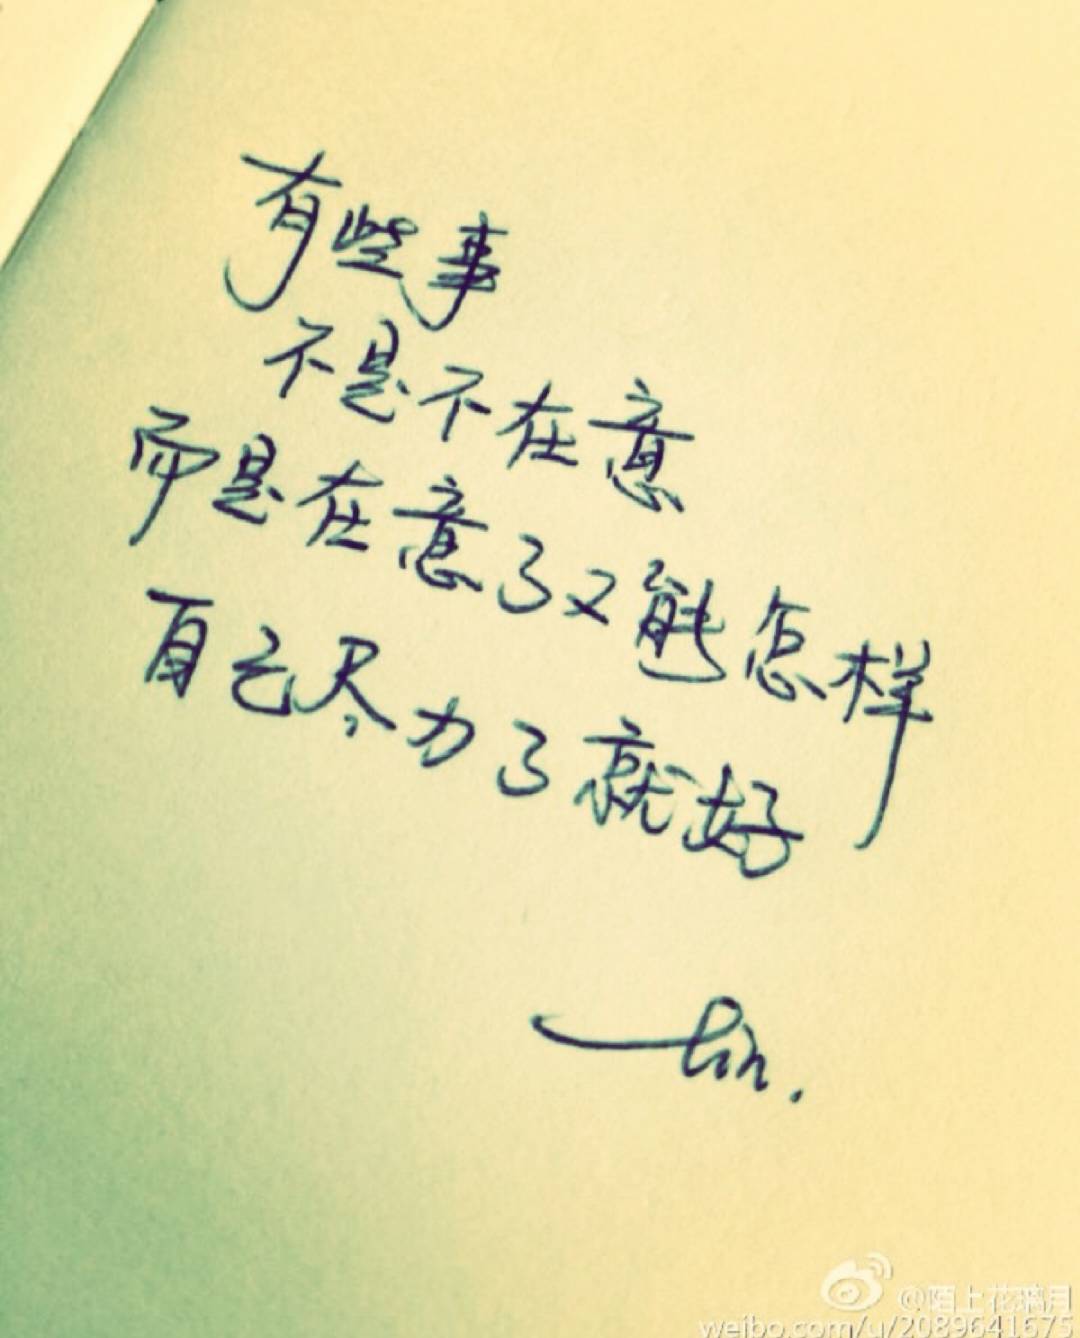 有些事
不是不在意
而是在意了又能怎样
自己尽力了就好
lin.
@陌上花璃月
weibo.com/u/2089641675